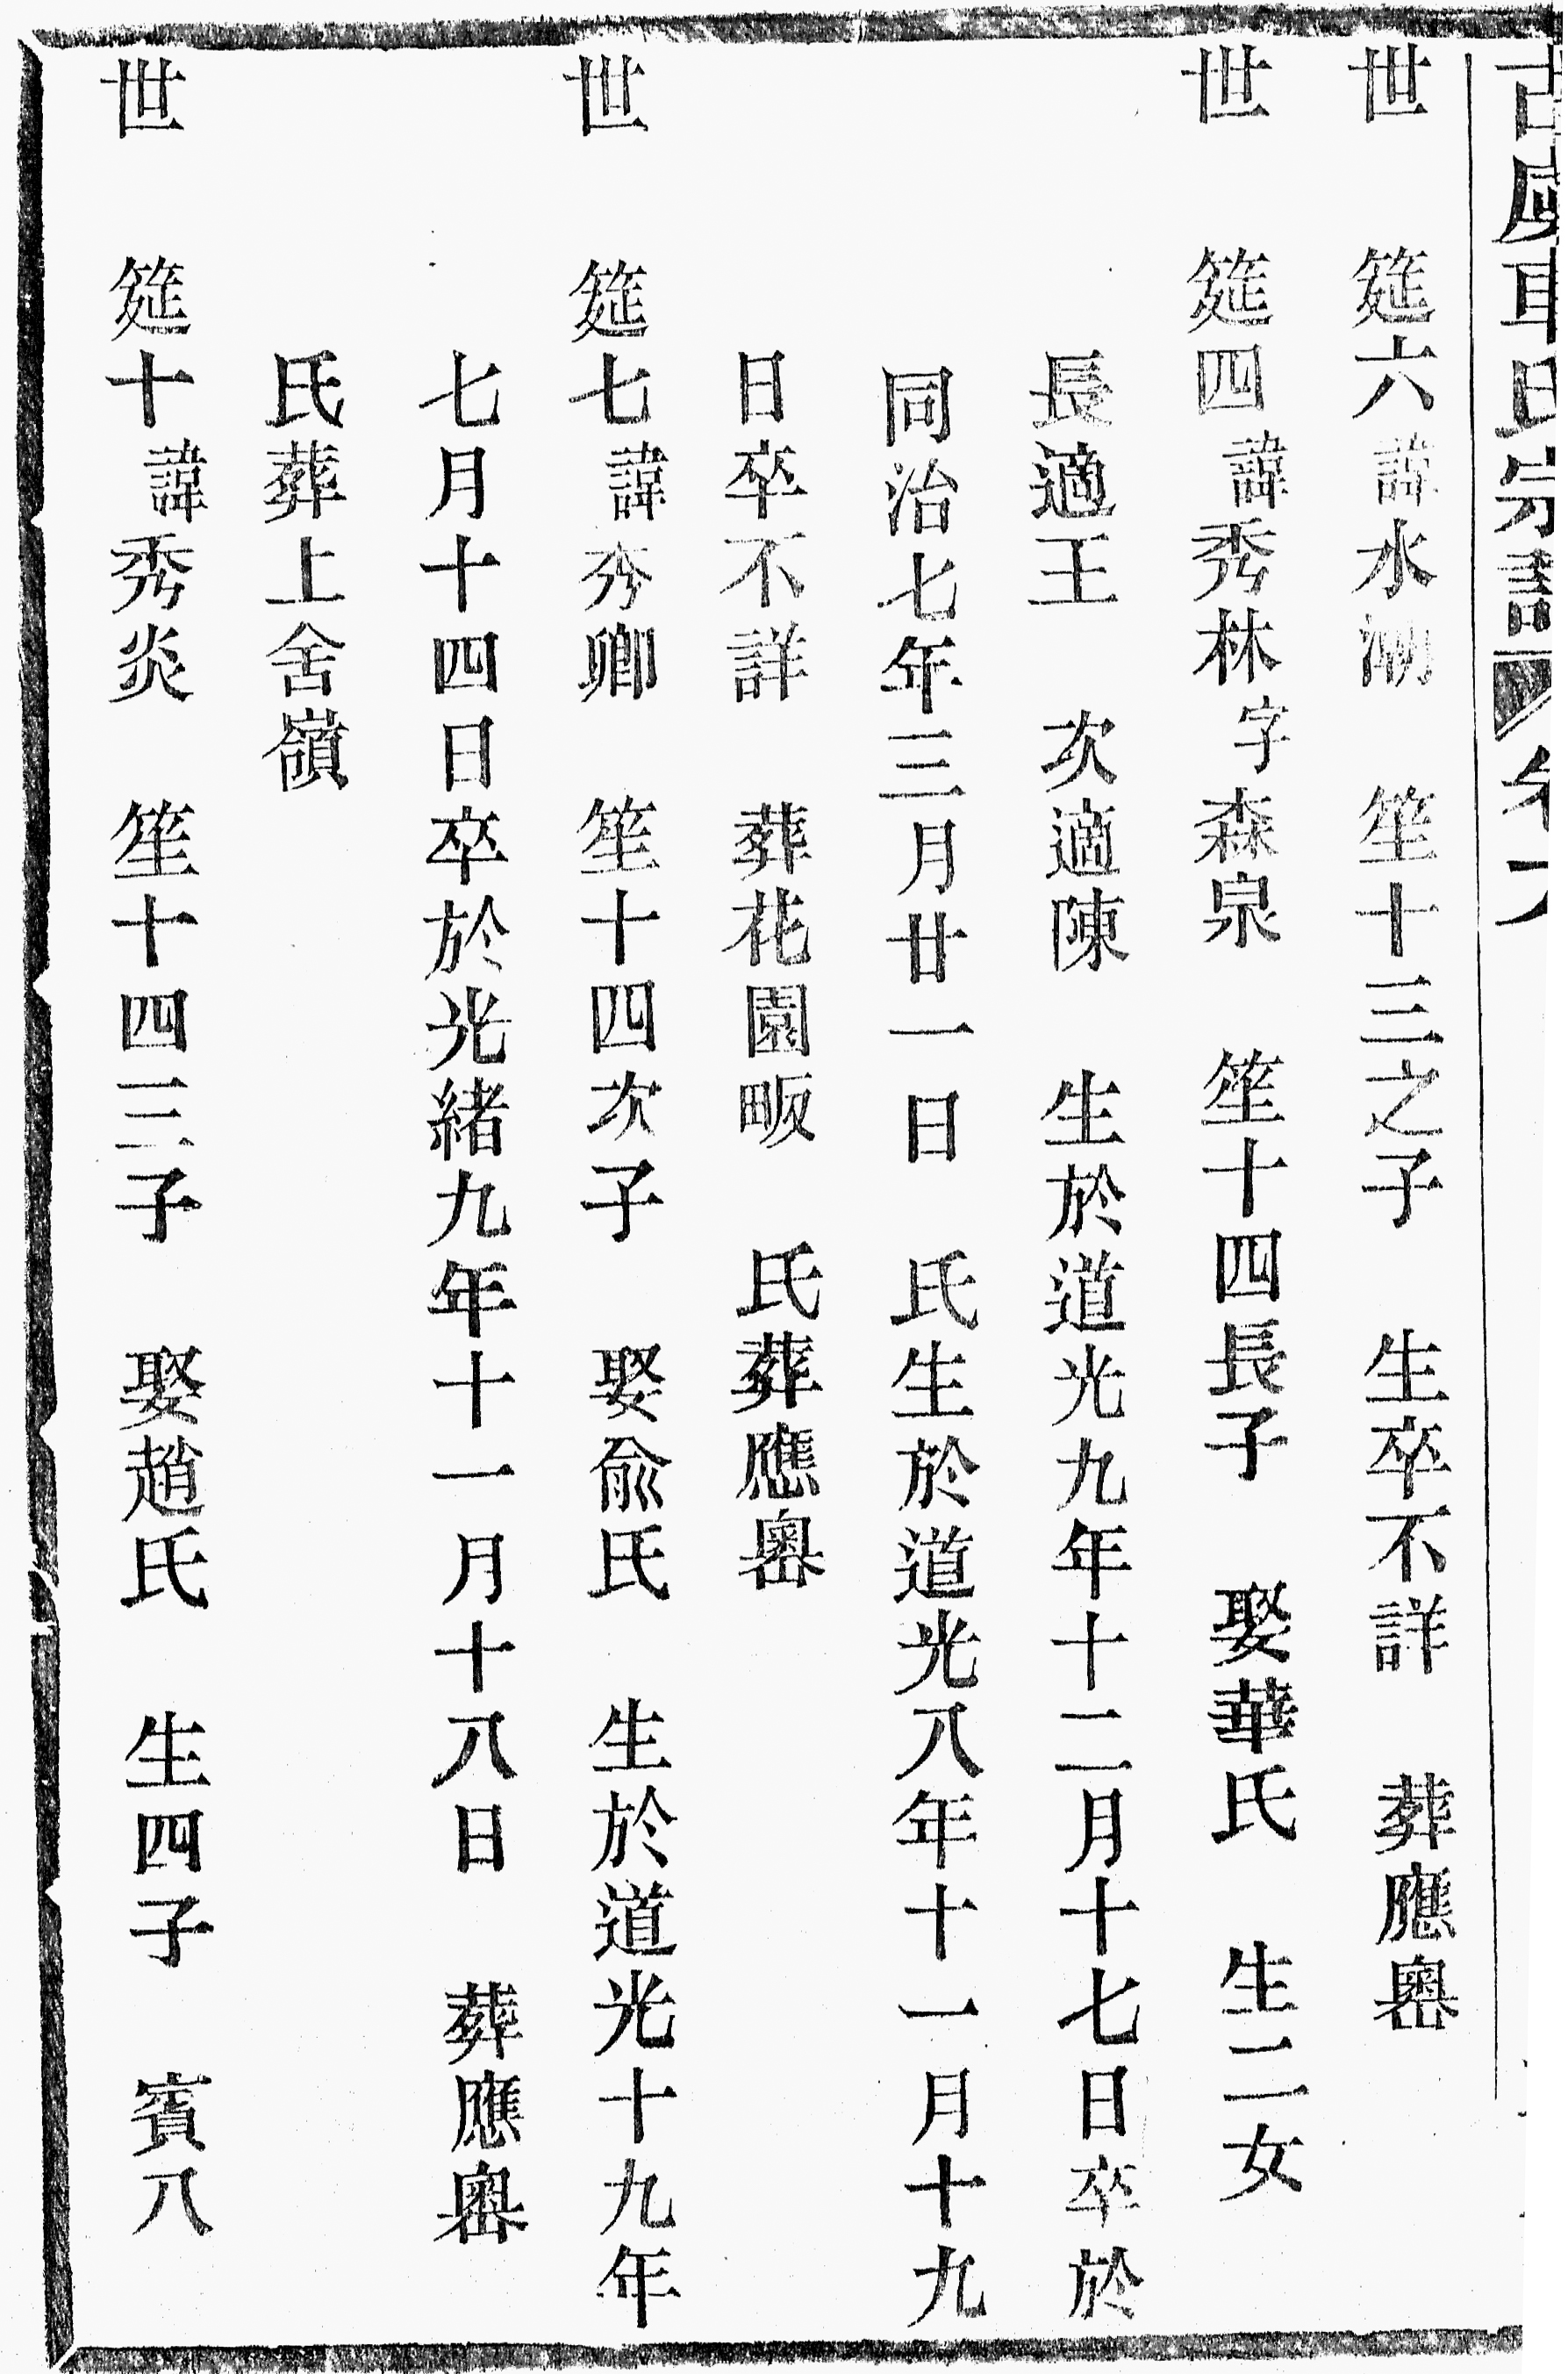 古虞氏宗譜 卷
世 筵六諱水潮 笙十三之子 生卒不詳 葬應嶴
世 筵四諱秀林字森泉 笙十四長子 娶華氏 生二女
長適王 次適陳 生於道光九年十二月十七日卒於
同治七年三月廿一日 氏生於道光八年十一月十九
日卒不詳 葬花園畈 氏葬應嶴
世 筵七諱秀卿 笙十四次子 娶兪氏 生於道光十九年
七月十四日卒於光緒九年十一月十八日 葬應嶴
氏葬上舍嶺
世 筵十諱秀炎 笙十四三子 娶趙氏 生四子 賓八